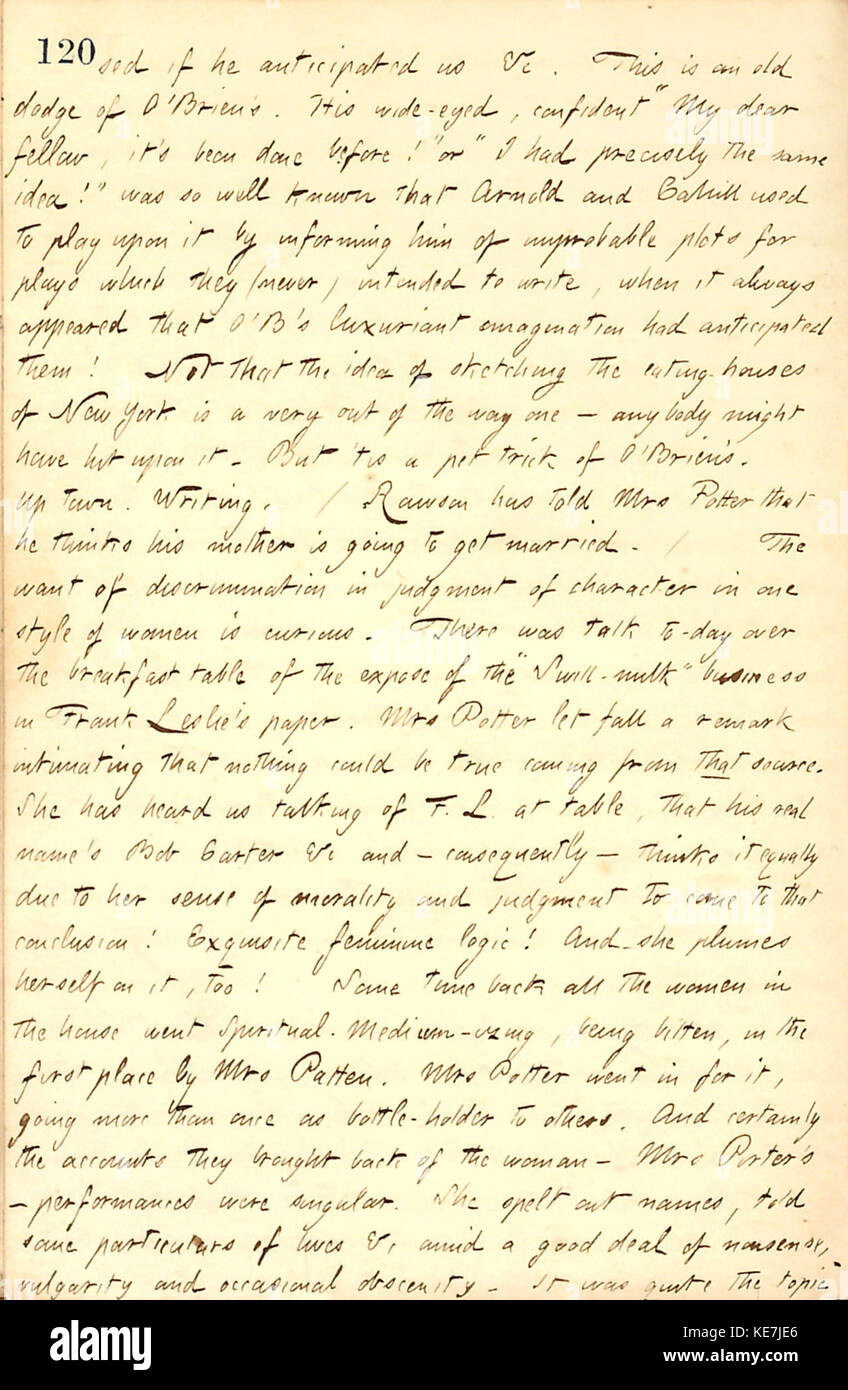 120
sed if he anticipated us &c. This is an old
dodge of O'Brien's. His wide-eyed, confident "My dear
fellow, it's been done before!" or "I had precisely the same
idea!" was so well known that Arnold and Cahill used
to play upon it by informing him of improbable plots for
plays which they (never) intended to write, when it always
appeared that O'B's luxuriant imagination had anticipated
them! Not that the idea of sketching the eating-houses
of New York is a very out of the way one — anybody might
have hit upon it. But 'tis a pet trick of O'Brien's.
Up town. Writing. / Rawson has told Mrs Potter that
he thinks his mother is going to get married. / The
want of discrimination in judgment of character in one
style of women is curious. There was talk to-day over
the breakfast table of the expose of the "Swill-milk" business
in Frank Leslie's paper. Mrs Potter let fall a remark
intimating that nothing could be true coming from that source.
She has heard us talking of F. L. at table, that his real
name's Bob Carter &c and — consequently — thinks it equally
due to her sense of morality and judgment to come to that
conclusion! Exquisite feminine logic! And she plumes
herself on it, too! Some time back all the women in
the house went Spiritual-Medium-izing, being bitten, in the
first place by Mrs Patten. Mrs Potter went in for it,
going more than once as bottle-holder to others. And certainly
the accounts they brought back of the woman — Mrs Porter's
— performances were singular. She spelt out names, told
some particulars of lives &c amid a good deal of nonsense,
vulgarity and occasional obscenity. It was quite the topic
alamy
Image ID: KE7JE6
www.alamy.com